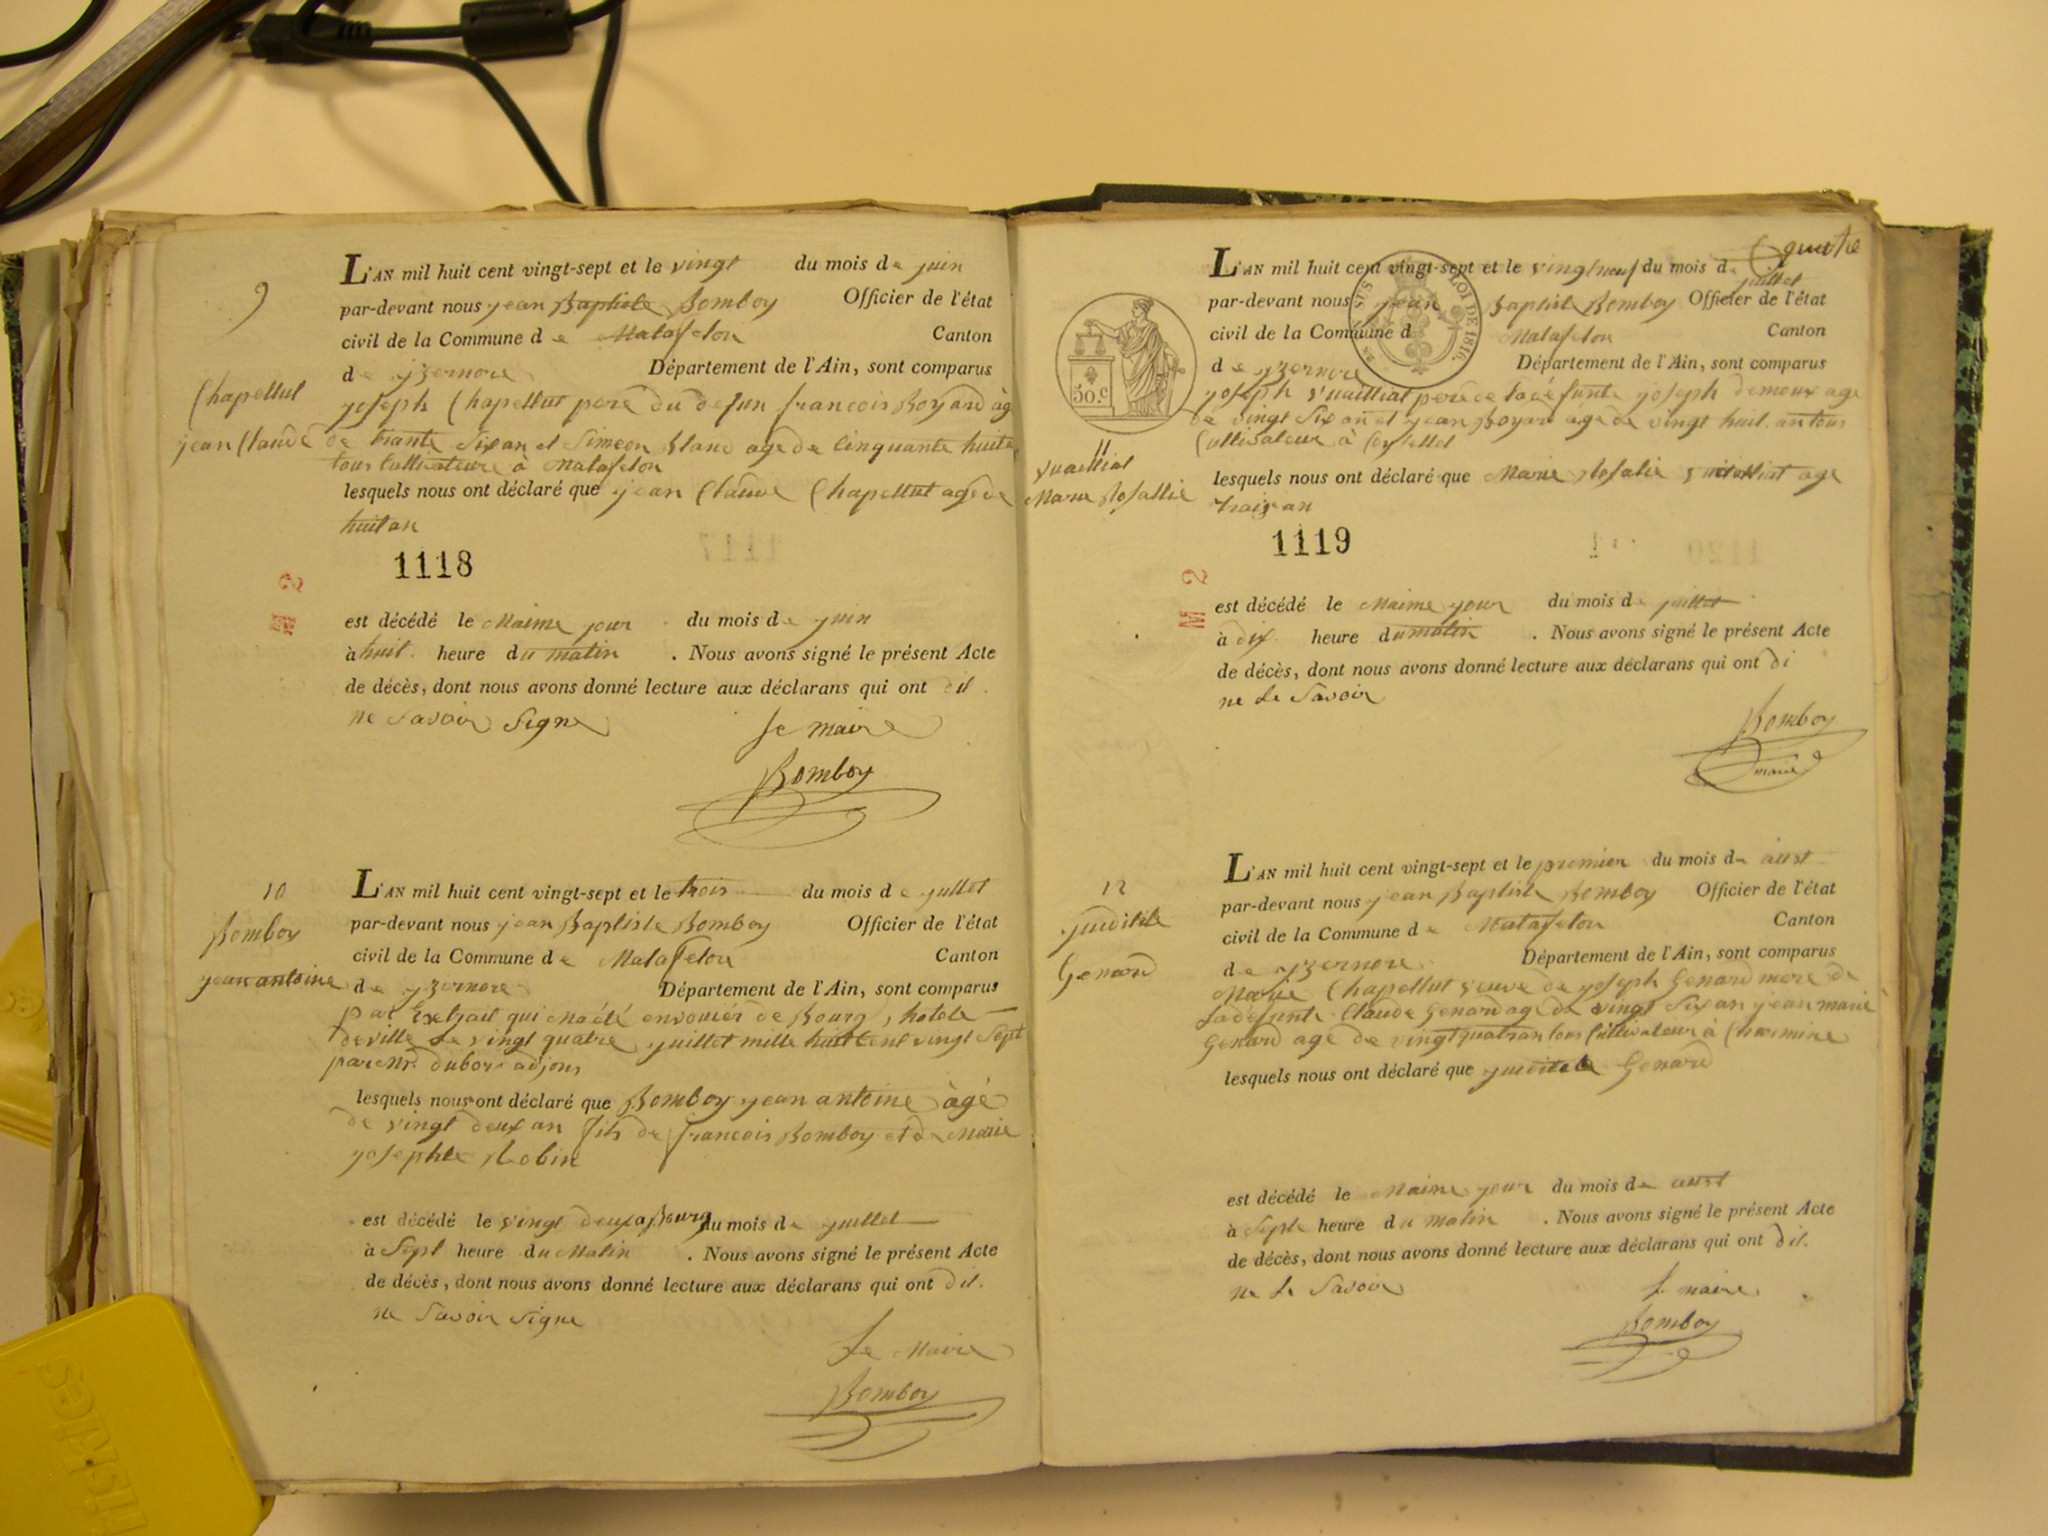 9
Chapellut
jean Claude
L'AN mil huit cent vingt-sept et le vingt du mois de juin
par-devant nous jean Baptiste Bomboy Officier de l'état
civil de la Commune de Matafelon Canton
de yzernore Département de l'Ain, sont comparus
joseph Chapellut pere du defun francois Boyard àg
de trante six an et Simeon blanc age de cinquante huite
tous Cultivateure à Matafelon
lesquels nous ont déclaré que jean Claude Chapellut age de
huit an
1118
M 2
est décédé le Maime jour du mois de juin
à huit heure du matin. Nous avons signé le présent Acte
de décès, dont nous avons donné lecture aux déclarans qui ont dit
ne Savoir Signe
le maire
Bomboy
10
Bomboy
jean antoine
L'AN mil huit cent vingt-sept et le trois du mois de jullet
par-devant nous jean Baptiste Bomboy Officier de l'état
civil de la Commune de Matafelon Canton
de yzernore Département de l'Ain, sont comparus
par Extrait qui ma été envouier de Bourg, hotel
de ville Le vingt quatre juillet mille huit cent vingt Sept
par mr. dubor adjoin
lesquels nous ont déclaré que Bomboy jean antoine àgé
de vingt deux an fils de francois Bomboy et de Marie
josephte Robin
est décédé le vingt deux a Bourg du mois de juillet
à Sept heure du Matin. Nous avons signé le présent Acte
de décès, dont nous avons donné lecture aux déclarans qui ont dit.
ne Savoir Signe
Le Maire
Bomboy
quatre
50 c
ROI DE 1816.
11
Vuaillat
Marie Rosallie
L'AN mil huit cent vingt-sept et le vingt neuf du mois de juillet
par-devant nous jean Baptiste Bomboy Officier de l'état
civil de la Commune d Matafelon Canton
de yzernore Département de l'Ain, sont comparus
joseph Vuailliat pere de la défunte joseph demoux age
de vingt Six an et jean Boyard age de vingt huit an tous
Cultivateur à
lesquels nous ont déclaré que Marie Rosalie Vuailliat age
trois an
1119
M 2
est décédé le Maime jour du mois de juillet
à dix heure du matin. Nous avons signé le présent Acte
de décès, dont nous avons donné lecture aux déclarans qui ont di
ne Le Savoir
Bomboy
maire
12
Genard
L'AN mil huit cent vingt-sept et le premier du mois de aust
par-devant nous jean Baptiste Bomboy Officier de l'état
civil de la Commune de Matafelon Canton
de yzernore Département de l'Ain, sont comparus
Marie Chapellut veuve de joseph Genard mere de
la defunte Claude Genard age de vingt Six an jean marie
Genard age de vingt quatr an tous Cultivateur à Charmine
lesquels nous ont déclaré que Genard
est décédé le Maime jour du mois de aust
à Septe heure du matin. Nous avons signé le présent Acte
de décès, dont nous avons donné lecture aux déclarans qui ont dit.
ne Le Savoir
le maire
Bomboy